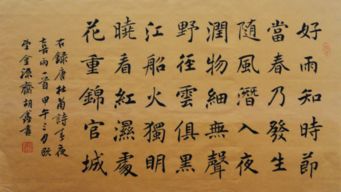 好雨知時節
當春乃發生
隨風潛入夜
潤物細無聲
野徑雲俱黑
江船火獨明
曉看紅濕處
花重錦官城
右錄唐杜甫詩春夜
喜雨一首甲午三月
金源齋胡
書